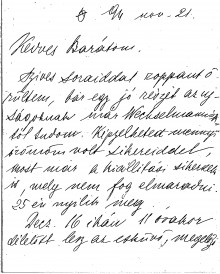 94 nov. 21.
Kedves Barátom.
Szives soraiddal roppant ö
rültem, bár egy jó részét az uj
ságoknak már Wechselmann
tól tudom. Képzelheted mennyi
örömöm volt sikereiddel,
most már a kiállítási sikerek
is, mely nem fog elmaradni.
25 én nyílik meg
Decz. 16 ikán 11 órakor
délelőtt lesz az esküvő, megelőz